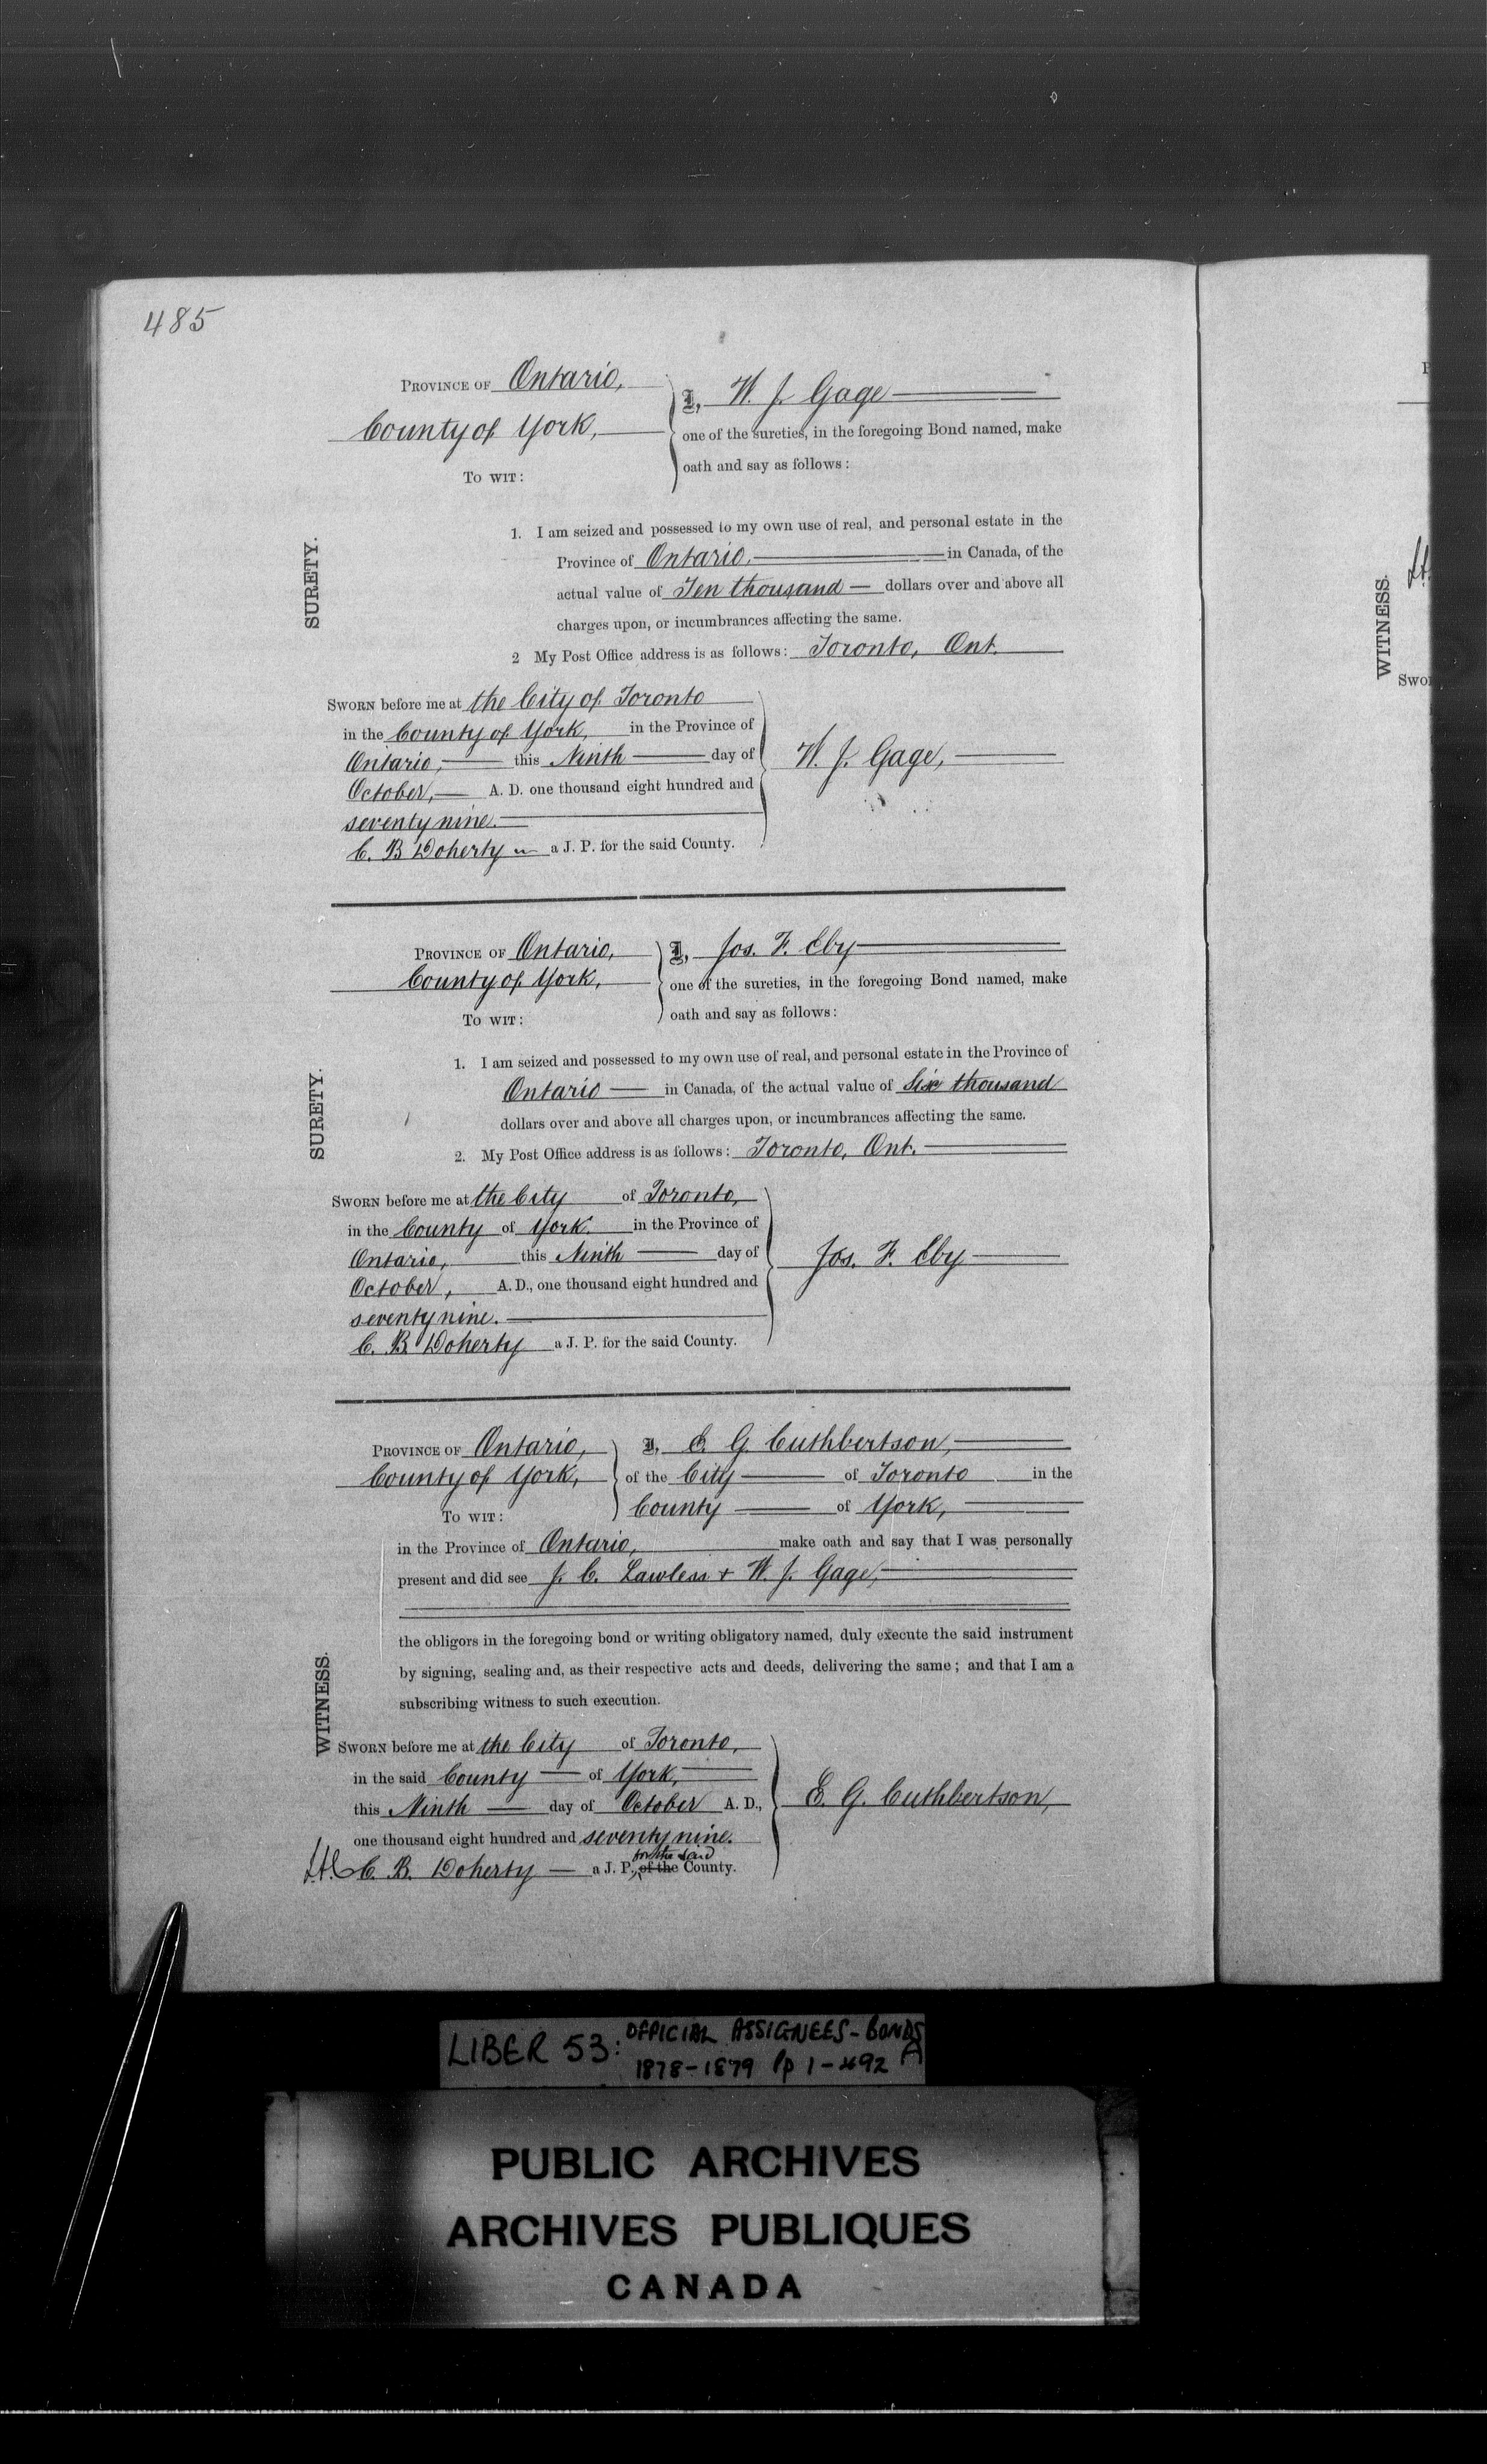 485
PROVINCE OF Ontario,
County of York,
TO WIT:
I, W. J. Gage
one of the sureties, in the foregoing Bond named, make
oath and say as follows:
SURETY.
1. I am seized and possessed to my own use of real, and personal estate in the
Province of Ontario, in Canada, of the
actual value of Ten thousand — dollars over and above all
charges upon, or incumbrances affecting the same.
2 My Post Office address is as follows: Toronto, Ont.
SWORN before me at the City of Toronto
in the County of York, in the Province of
Ontario, this Ninth day of
October, A. D. one thousand eight hundred and
seventy nine.
C. B Doherty a J. P. for the said County.
W. J. Gage,
PROVINCE OF Ontario,
County of York,
TO WIT:
I, Jos. F. Eby
one of the sureties, in the foregoing Bond named, make
oath and say as follows:
SURETY.
1. I am seized and possessed to my own use of real, and personal estate in the Province of
Ontario — in Canada, of the actual value of Six thousand
dollars over and above all charges upon, or incumbrances affecting the same.
2. My Post Office address is as follows: Toronto, Ont.
SWORN before me at the City of Toronto,
in the County of York. in the Province of
Ontario, this Ninth day of
October, A. D., one thousand eight hundred and
seventy nine.
C. B Doherty a J. P. for the said County.
Jos. F. Eby
PROVINCE OF Ontario,
County of York,
TO WIT:
I, E. G. Cuthbertson,
of the City of Toronto in the
County of York,
in the Province of Ontario, make oath and say that I was personally
present and did see J. C. Lawless + W. J. Gage,
the obligors in the foregoing bond or writing obligatory named, duly execute the said instrument
by signing, sealing and, as their respective acts and deeds, delivering the same; and that I am a
subscribing witness to such execution.
WITNESS.
SWORN before me at the City of Toronto,
in the said County — of York,
this Ninth — day of October A. D.,
one thousand eight hundred and seventy nine.
for the said
C. B. Doherty — a J. P., of the County.
E. G. Cuthbertson,
WITNESS.
LIBER 53: OFFICIAL ASSIGNEES - BONDS
1878-1879 pp 1-492 A
PUBLIC ARCHIVES
ARCHIVES PUBLIQUES
CANADA